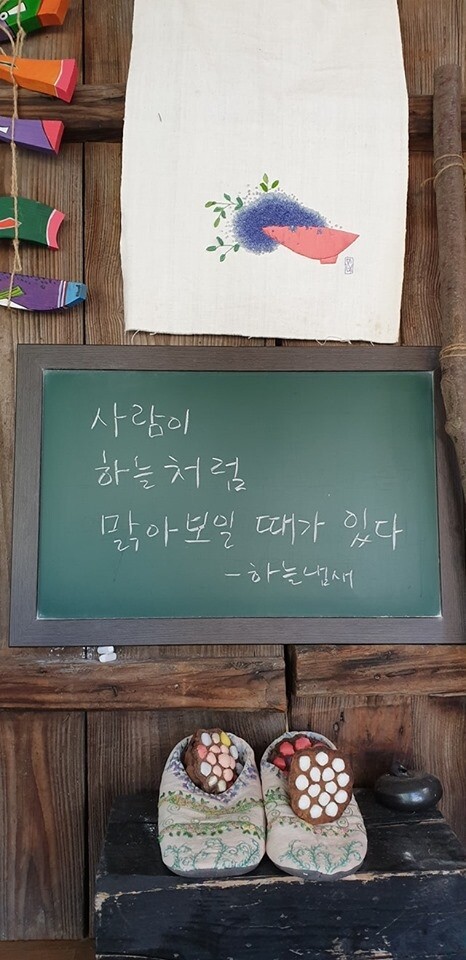 사람이
하늘처럼
맑아보일 때가 있다
- 하늘냄새